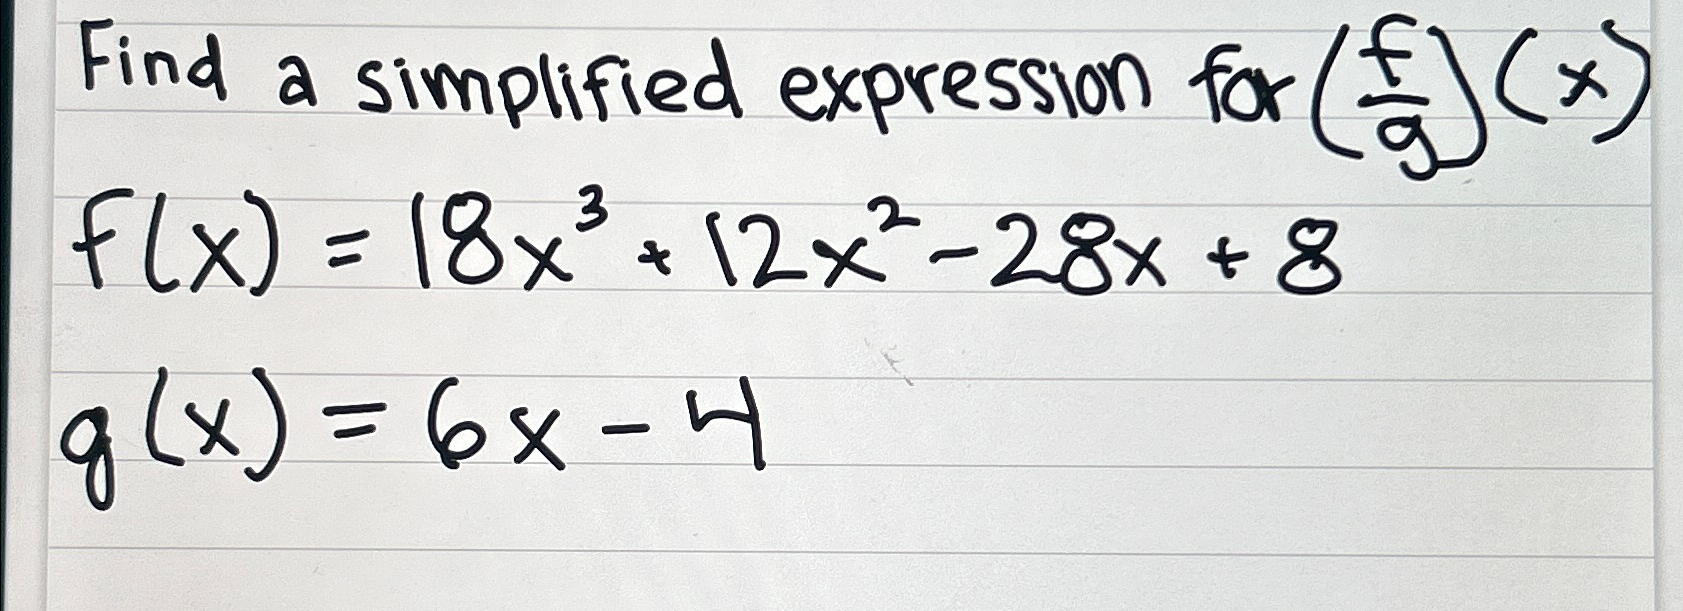 Find a simplified expression for (f/g)(x)
f(x) = 18x³ + 12x² - 28x + 8
g(x) = 6x - 4